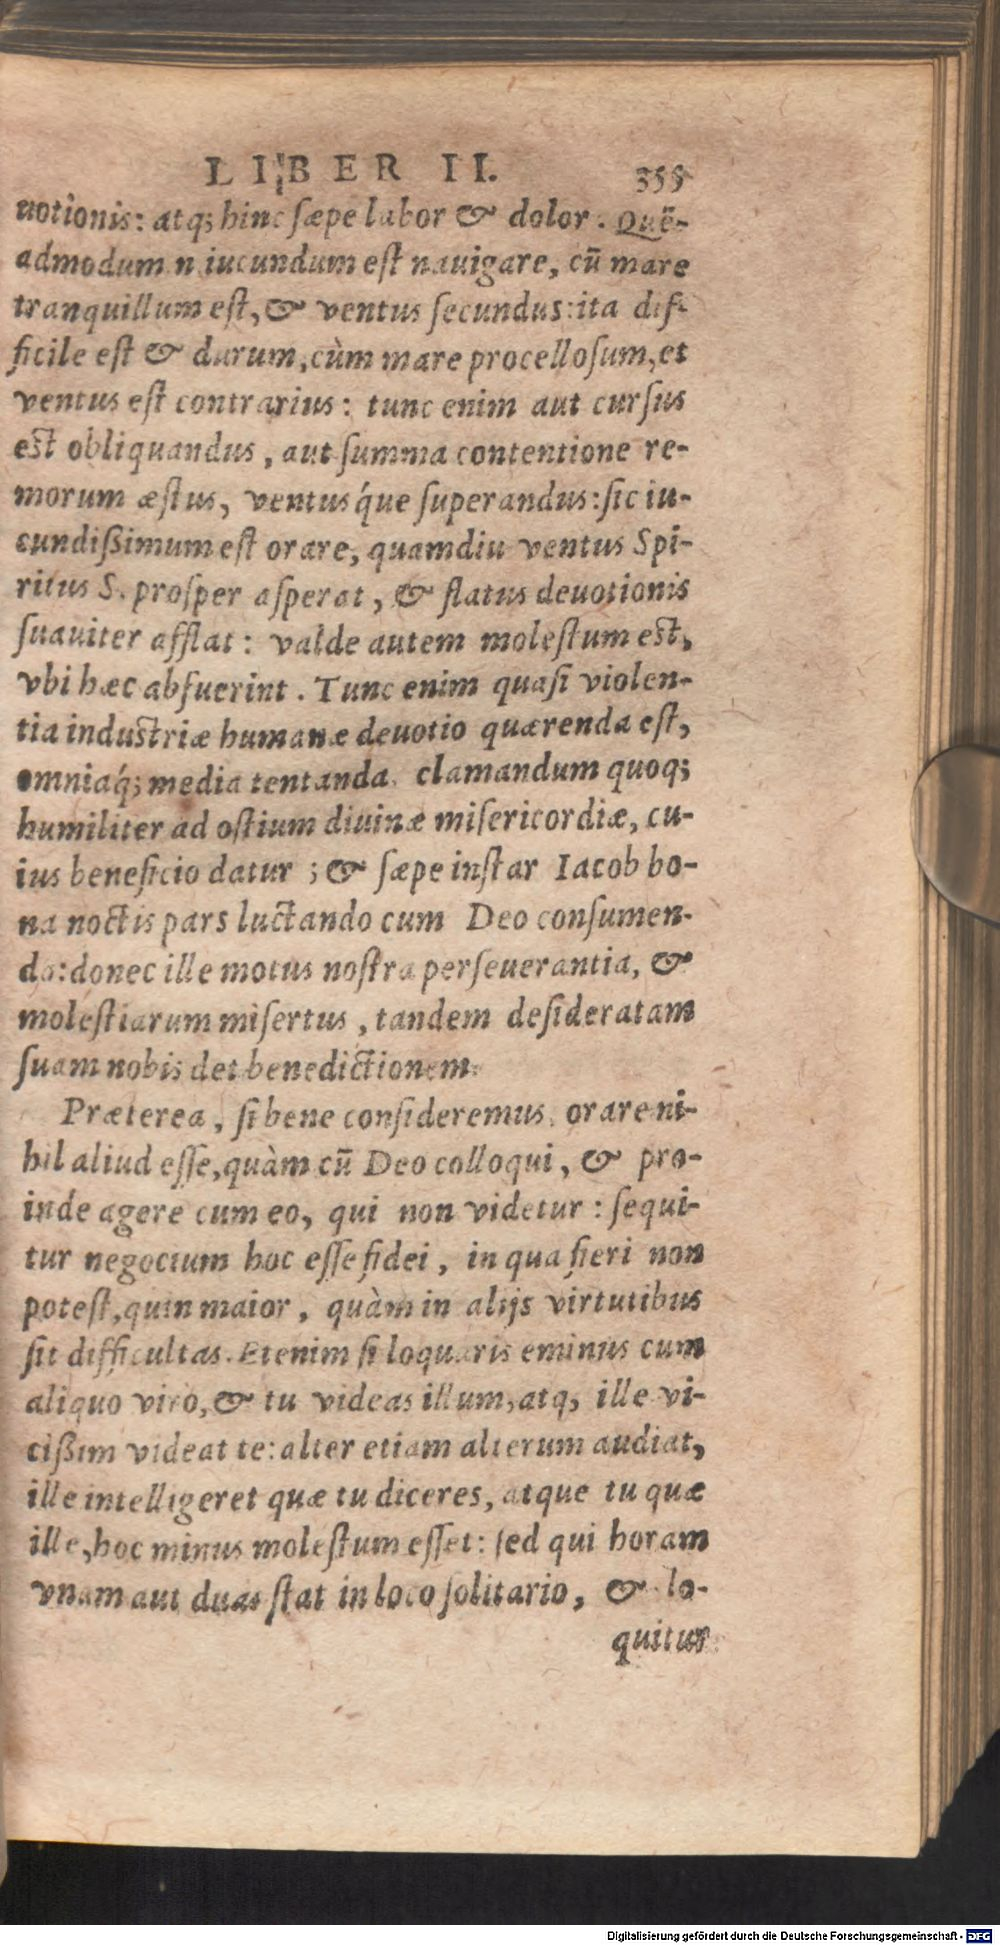 LIBER II. 355
uotionis: atq; hinc sæpe labor & dolor. Quẽ-
admodum n iucundum est nauigare, cũ mare
tranquillum est, & ventus secundus: ita dif-
ficile est & durum, cùm mare procellosum, et
ventus est contrarius: tunc enim aut cursus
est obliquandus, aut summa contentione re-
morum æstus, ventusq́ue superandus: sic iu-
cundißimum est orare, quamdiu ventus Spi-
ritus S. prosper asperat, & flatus deuotionis
suauiter afflat: valde autem molestum est,
vbi hæc absuerint. Tunc enim quasi violen-
tia industriæ humanæ deuotio quærenda est,
omniaq́; media tentanda. clamandum quoq;
humiliter ad ostium diuinæ misericordiæ, cu-
ius beneficio datur; & sæpe instar Iacob bo-
na noctis pars luctando cum Deo consumen-
da: donec ille motus nostra perseuerantia, &
molestiarum misertus, tandem desideratam
suam nobis det benedictionem.
Præterea, si bene consideremus, orare ni-
hil aliud esse, quàm cũ Deo colloqui, & pro-
inde agere cum eo, qui non videtur: sequi-
tur negocium hoc esse fidei, in qua fieri non
potest, quin maior, quàm in alijs virtutibus
sit difficultas. Etenim si loquaris eminus cum
aliquo viro, & tu videas illum, atq, ille vi-
cißim videat te: alter etiam alterum audiat,
ille intelligeret quæ tu diceres, atque tu quæ
ille, hoc minus molestum esset: sed qui horam
vnam aut duas stat in loco solitario, & lo-
quitur
Digitalisierung gefördert durch die Deutsche Forschungsgemeinschaft - DFG